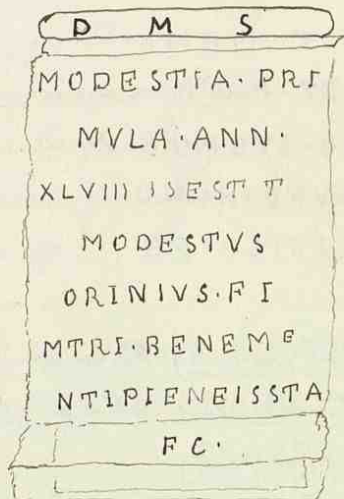 D M S
MODESTIA · PRI
MVLA · ANN ·
XLVIII HSEST T
MODESTVS
ORINIVS · FI
MTRI · BENEME
NTIPIENEISSTA
F C ·